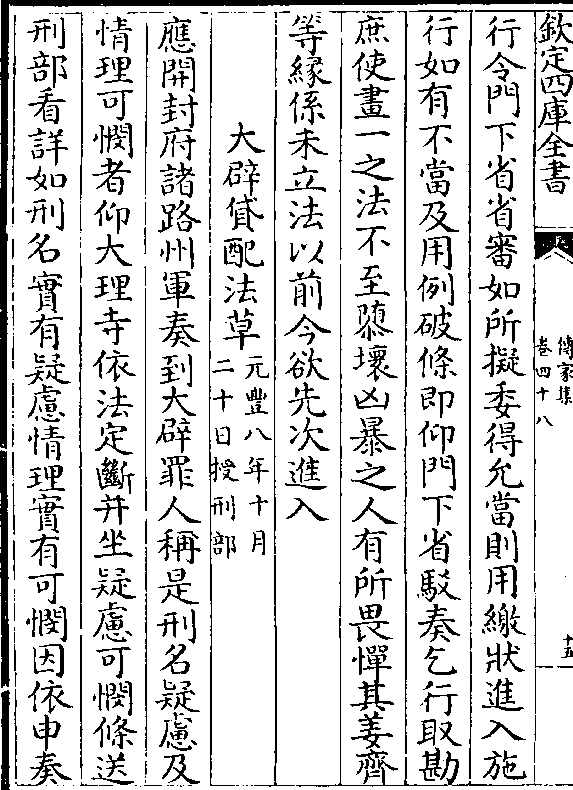 欽定四庫全書
傳家集
卷四十八
十五
行令門下省省審如所擬委得允當則用繳狀進入施
行如有不當及用例破條即仰門下省駮奏乞行取勘
庶使畫一之法不至隳壞凶暴之人有所畏憚其姜齊
等緣係未立法以前今欲先次進入
大辟貸配法草
元豐八年十月
二十日授刑部
應開封府諸路州軍奏到大辟罪人稱是刑名疑慮及
情理可憫者仰大理寺依法定斷并坐疑慮可憫條送
刑部看詳如刑名實有疑慮情理實有可憫因依申奏